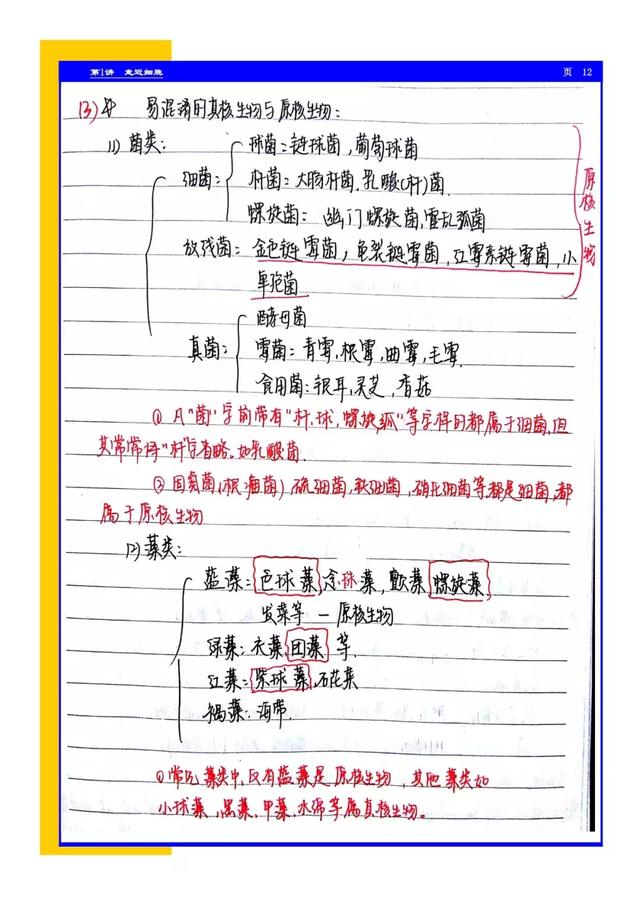 第1讲 走近细胞
页 12
(3) 易混淆的真核生物与原核生物:
(1) 菌类:
球菌:链球菌,葡萄球菌
细菌: 杆菌:大肠杆菌.乳酸(杆)菌.
螺旋菌: 幽门螺旋菌,霍乱弧菌
放线菌: 金色链霉菌,龟裂链霉菌,红霉素链霉菌,小
单孢菌
原核生物
酵母菌
真菌: 霉菌:青霉,根霉,曲霉,毛霉.
食用菌:银耳,灵芝,香菇
① 凡"菌"字前带有"杆.球,螺旋,弧"等字样的都属于细菌,但
其常常将"杆"字省略.如乳酸菌.
② 固氮菌(根瘤菌)硫细菌,铁细菌,硝化细菌等都是细菌,都
属于原核生物
(2) 藻类:
蓝藻:色球藻,念珠藻,颤藻,螺旋藻
发菜等 — 原核生物
绿藻:衣藻,团藻 等.
红藻:紫球藻,石花菜
褐藻:海带.
①常见藻类中,只有蓝藻是原核生物,其他藻类如
小球藻,黑藻,甲藻,水绵等属真核生物。